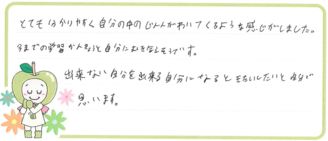 とても分かりやすく自分の中のじしんがわいてくるような感じがしました。
今までの学習がんきょうと自分にむきなえそうです。
出来ない自分を出来る自分になるともらいたいと自分で
思います。